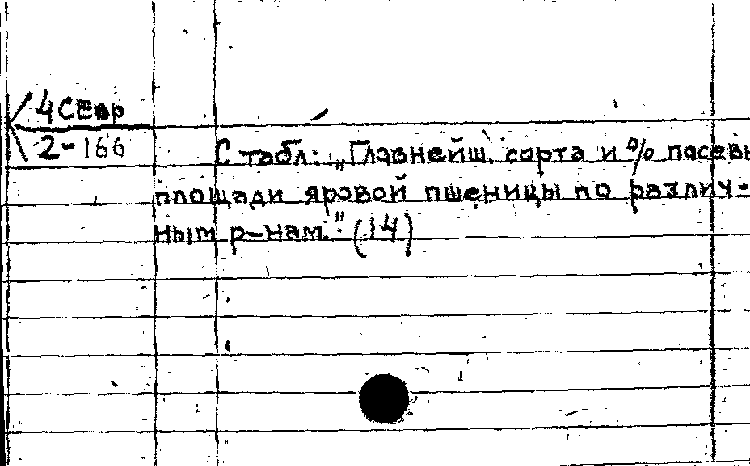 4СЕвр
2-166
С табл: „Главнейш. сорта и % посевн
площади яровой пшеницы по различ-
ным р-нам." (14)